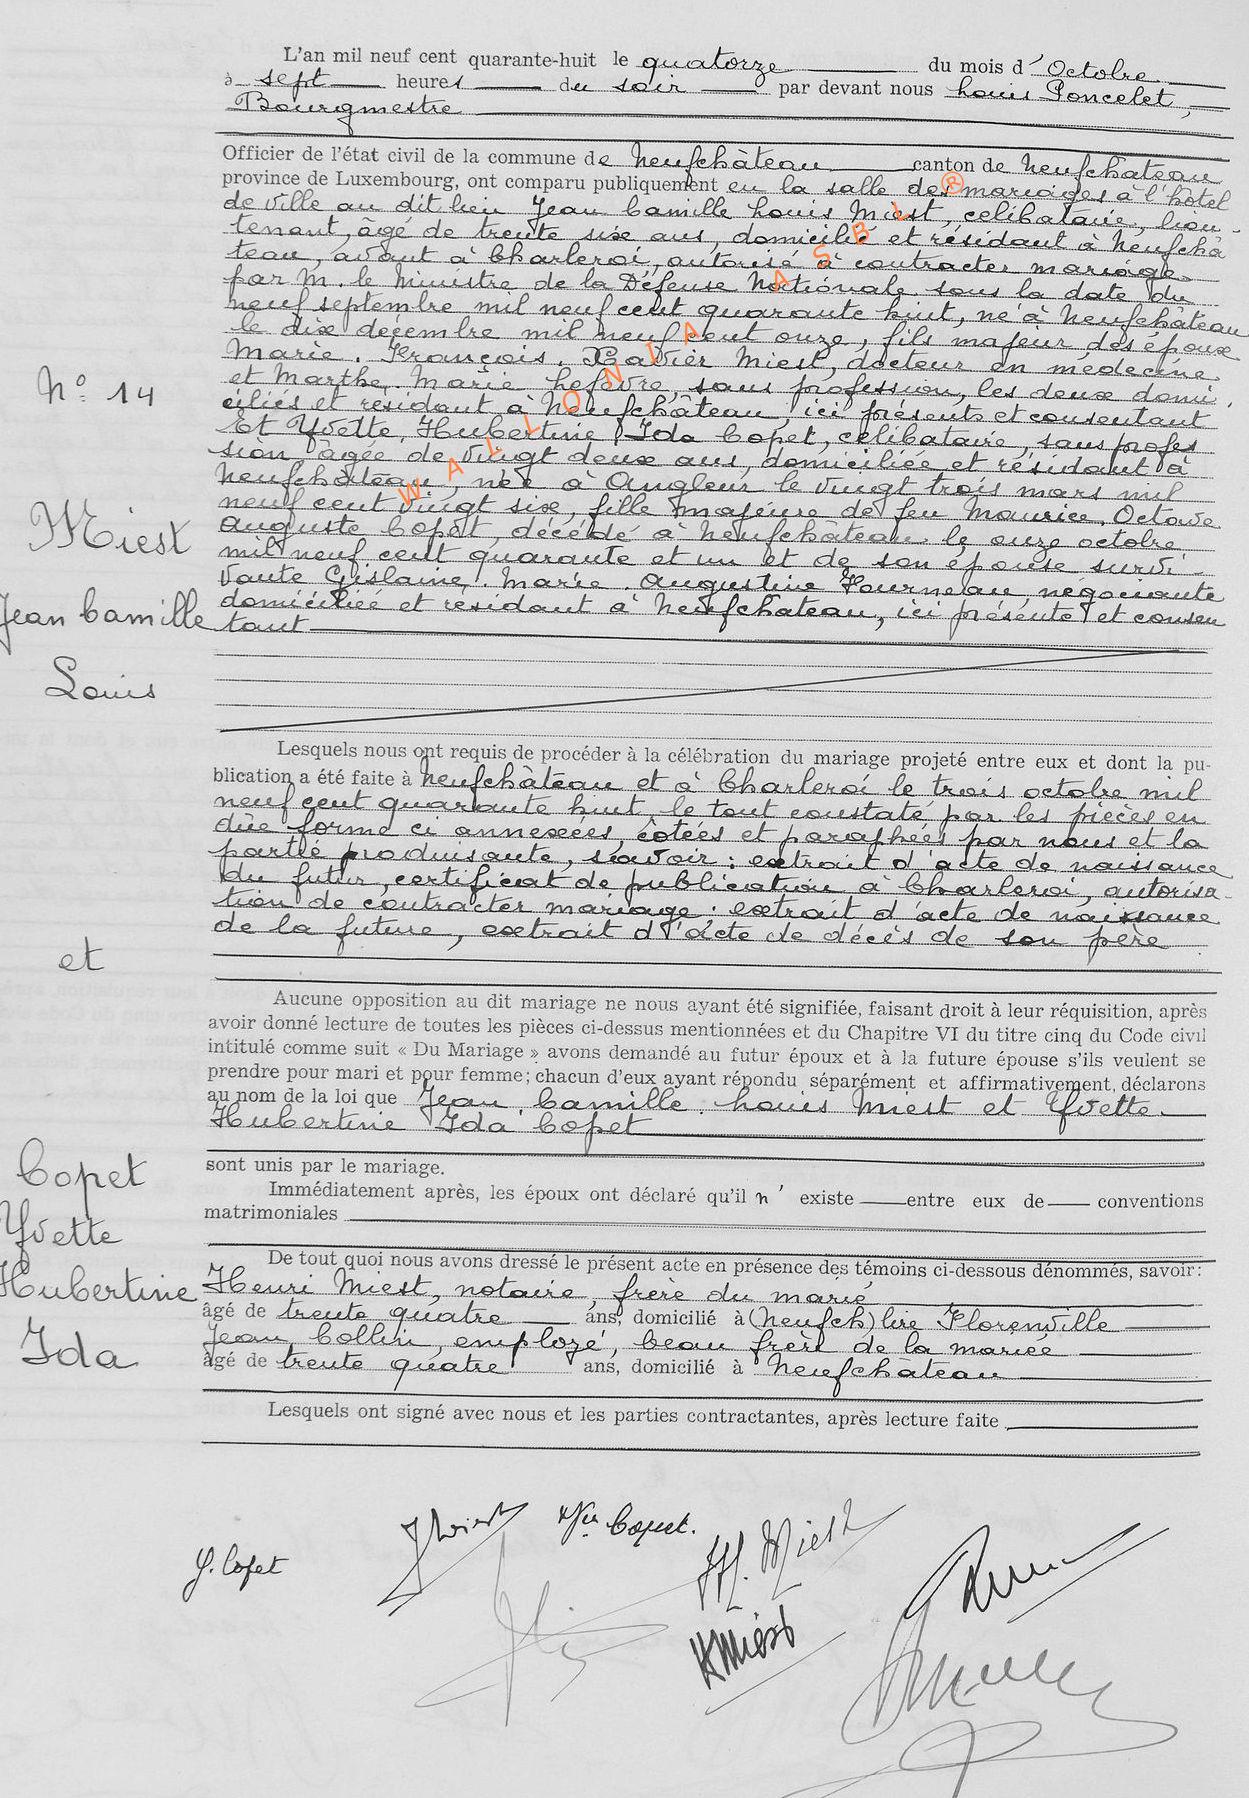 L'an mil neuf cent quarante-huit le quatorze du mois d'Octobre
à sept heures du soir par devant nous Louis Poncelet,
Bourgmestre
Officier de l'état civil de la commune de Neufchâteau canton de Neufchâteau
province de Luxembourg, ont comparu publiquement en la salle des mariages à l'hôtel
de ville au dit lieu Jean Camille Louis Miest, célibataire, lieu-
tenant, âgé de trente six ans, domicilié et résidant à Neufchâ
teau, avant à Charleroi, autorisé à contracter mariage
par M. le Ministre de la Défense Nationale sous la date du
neuf septembre mil neuf cent quarante huit, né à Neufchâteau
le dix décembre mil neuf cent onze, fils majeur des époux
Marie. François. Xavier Miest, docteur en médecine
et Marthe. Marie Lefèvre, sans profession, les deux domi
ciliés et résidant à Neufchâteau, ici présents et consentant
Et Yvette, Hubertine Ida Copet, célibataire, sans profes
sion âgée de vingt deux ans, domiciliée et résidant à
Neufchâteau, née à Angleur le vingt trois mars mil
neuf cent vingt six, fille majeure de feu Maurice. Octave
Auguste Copet, décédé à Neufchâteau le onze octobre
mil neuf cent quarante et un et de son épouse survi-
vante Gislaine. Marie. Augustine Fourneau, négociante
domiciliée et résidant à Neufchâteau, ici présente et consen
tant
N° 14
Miest
Jean Camille
Louis
et
Copet
Yvette
Hubertine
Ida
WALLONIA ASBL ®
Lesquels nous ont requis de procéder à la célébration du mariage projeté entre eux et dont la pu-
blication a été faite à Neufchâteau et à Charleroi le trois octobre mil
neuf cent quarante huit le tout constaté par les pièces en
dûe forme ci annexées, cotées et paraphées par nous et la
partie produisante, savoir : extrait d'acte de naissance
du futur, certificat de publication à Charleroi, autorisa-
tion de contracter mariage ; extrait d'acte de naissance
de la future, extrait d'acte de décès de son père
Aucune opposition au dit mariage ne nous ayant été signifiée, faisant droit à leur réquisition, après
avoir donné lecture de toutes les pièces ci-dessus mentionnées et du Chapitre VI du titre cinq du Code civil
intitulé comme suit « Du Mariage » avons demandé au futur époux et à la future épouse s'ils veulent se
prendre pour mari et pour femme; chacun d'eux ayant répondu séparément et affirmativement, déclarons
au nom de la loi que Jean. Camille. Louis Miest et Yvette.
Hubertine Ida Copet
sont unis par le mariage.
Immédiatement après, les époux ont déclaré qu'il n' existe entre eux de conventions
matrimoniales
De tout quoi nous avons dressé le présent acte en présence des témoins ci-dessous dénommés, savoir:
Henri Miest, notaire, frère du marié
âgé de trente quatre ans, domicilié à (Neufch) lire Florenville
Jean Collin, employé, beau frère de la mariée
âgé de trente quatre ans, domicilié à Neufchâteau
Lesquels ont signé avec nous et les parties contractantes, après lecture faite
Y. Copet
JMiest
Copet.
M. Miest
HMiest